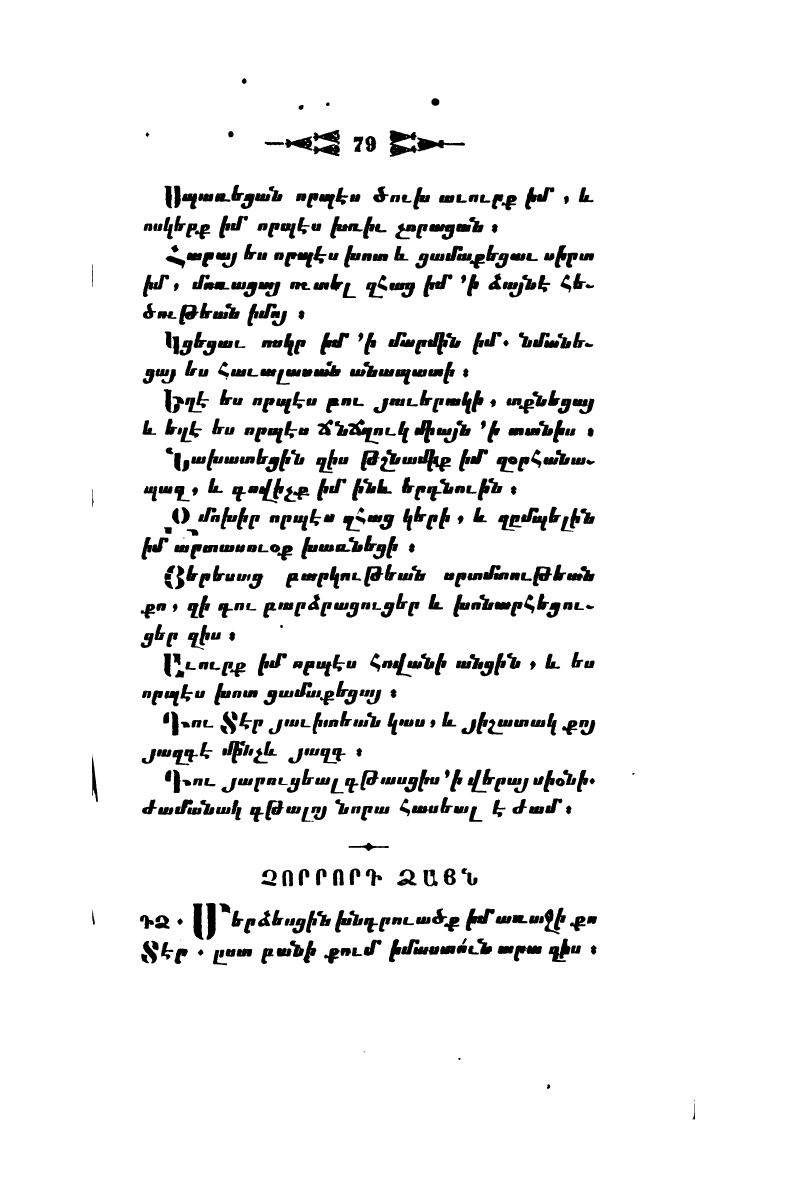 79
Սպառեցան որպէս ծուխ աւուրք իմ, և
ոսկերք իմ որպէս խռիւ չորացան ։
Հարայ ես որպէս խոտ և ցամաքեցաւ սիրտ
իմ, մոռացայ ուտել զհաց իմ ՚ի ձայնէ հե-
ծութեան իմոյ ։
Կցեցաւ ոսկր իմ ՚ի մարմին իմ. նմանե-
ցայ ես հաւալասան անապատի ։
Եղէ ես որպէս բու յաւերակի, տքնեցայ
և եղէ ես որպէս ճնճղուկ միայն ՚ի տանիս ։
Նախատեցին զիս թշնամիք իմ զօրհանա-
պազ, և գովիչք իմ ինև երդնուին ։
Զմոխիր որպէս զհաց կերի, և զըմպելին
իմ արտասուօք խառնեցի ։
Յերեսաց բարկութեան սրտմտութեան
քո, զի դու բարձրացուցեր և խոնարհեցու-
ցեր զիս ։
Աւուրք իմ որպէս հովանի անցին, և ես
որպէս խոտ ցամաքեցայ ։
Դու Տէր յաւիտեան կաս, և յիշատակ քոյ
յազգէ մինչև յազգ ։
Դու յարուցեալ գթասցիս ՚ի վերայ սիօնի.
ժամանակ գթալոյ նորա հասեալ է ժամ ։
ՉՈՐՐՈՐԴ ՁԱՅՆ
ԴՁ. Մերձեսցին խնդրուածք իմ առաջի քո
Տէր. ըստ բանի քում իմաստուն արա զիս ։